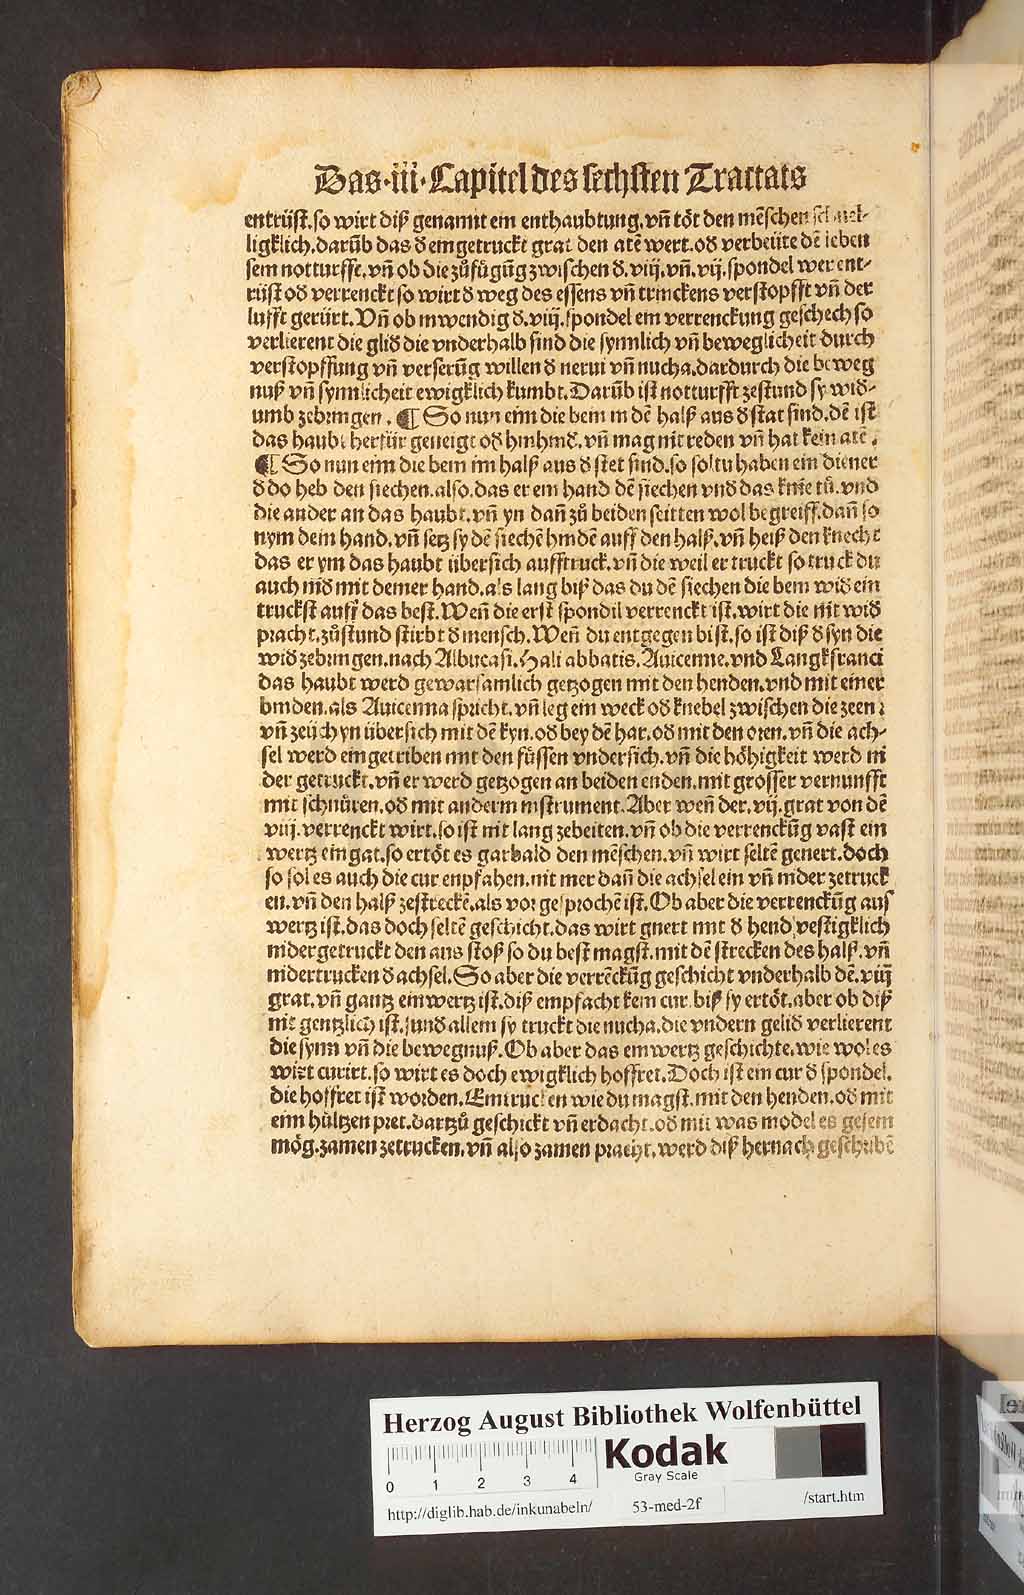 Das·iii·Capitel des sechsten Tractats
entrüst.so wirt diß genannt ein enthaubtung.vñ töt den mẽschen
ligklich.darũb das ð eingetruckt grat den atẽ wert.oð verbeüte dẽ leben
sein notturfft.vñ ob die zůfůgũg zwischen ð.viij.vñ.vij.spondel wer ent-
rüst oð verrenckt so wirt ð weg des essens vñ trinckens verstopfft vñ der
lufft gerürt.Vñ ob inwendig ð.viij.spondel ein verrenckung geschech so
verlierent die glið die vnderhalb sind die synnlich vñ beweglicheit durch
verstopffung vñ verserũg willen ð nerui vñ nucha.dardurch die beweg
nuß vñ synnlicheit ewigklich kumbt.Darũb ist notturfft zestund sy wið-
umb zebringen.¶ So nun einn die bein in dẽ halß aus ð stat sind.dẽ ist
das haubt herfür geneigt oð hinhinð.vñ mag nit reden vñ hat kein atẽ.
¶ So nun einn die bein im halß aus ð stet sind.so soltu haben ein diener
ð do heb den siechen.also.das er ein hand dẽ siechen vnð das knie tů.vnd
die ander an das haubt.vñ yn dañ zů beiden seitten wol begreiff.dañ so
nym dein hand.vñ setz sy dẽ siechẽ hindẽ auff den halß.vñ heiß den knecht
das er ym das haubt übersich aufftruck.vñ die weil er truckt so truck du
auch nið mit deiner hand.als lang biß das du dẽ siechen die bein wið ein
truckst auff das best.Weñ die erst spondil verrenckt ist.wirt die nit wið
pracht.zůstund stirbt ð mensch.Weñ du entgegen bist.so ist diß ð syn die
wið zebringen.nach Albucasi.Hali abbatis.Auicenne.vnd Langkfranci
das haubt werd gewarsamlich getzogen mit den henden.vnd mit einer
binden.als Auicenna spricht.vñ leg ein weck oð knebel zwischen die zeen:
vñ zeüch yn übersich mit dẽ kyn.oð bey dẽ har.oð mit den oren.vñ die ach-
sel werd eingetriben mit den füssen vndersich.vñ die höhigkeit werd ni
der getruckt.vñ er werd getzogen an beiden enden.mit grosser vernunfft
mit schnüren.oð mit anderm instrument.Aber weñ der.vij.grat von dẽ
viij.verrenckt wirt.so ist nit lang zebeiten.vñ ob die verrenckũg vast ein
wertz ein gat.so ertöt es garbald den mẽschen.vñ wirt seltẽ genert.doch
so sol es auch die cur enpfahen.nit mer dañ die achsel ein vñ nider zetruck
en.vñ den halß zestreckẽ.als vor gesprochẽ ist.Ob aber die verrenckũg aus
wertz ist.das doch seltẽ geschicht.das wirt gnert mit ð hend vestigklich
nidergetruckt den aus stoß so du best magst.mit dẽ strecken des halß.vñ
nidertrucken ð achsel.So aber die verrẽckũg geschicht vnderhalb dẽ.viij
grat.vñ gantz einwertz ist.diß empfacht kein cur.biß sy ertöt.aber ob diß
nit gentzlich ist.sund allein sy truckt die nucha.die vndern gelið verlierent
die synn vñ die bewegnuß.Ob aber das einwertz geschichte.wie wol es
wirt curirt.so wirt es doch ewigklich hoffret.Doch ist ein cur ð spondel.
die hoffret ist worden.Eintrucken wie du magst.mit den henden.oð mit
einn hültzen pret.dartzů geschickt vñ erdacht.oð mit was model es gesein
mög.zamen zetrucken.vñ also zamen pracht.werd diß hernach geschribẽ
Herzog August Bibliothek Wolfenbüttel
0 1 2 3 4
Kodak
Gray Scale
http://diglib.hab.de/inkunabeln/ 53-med-2f /start.htm